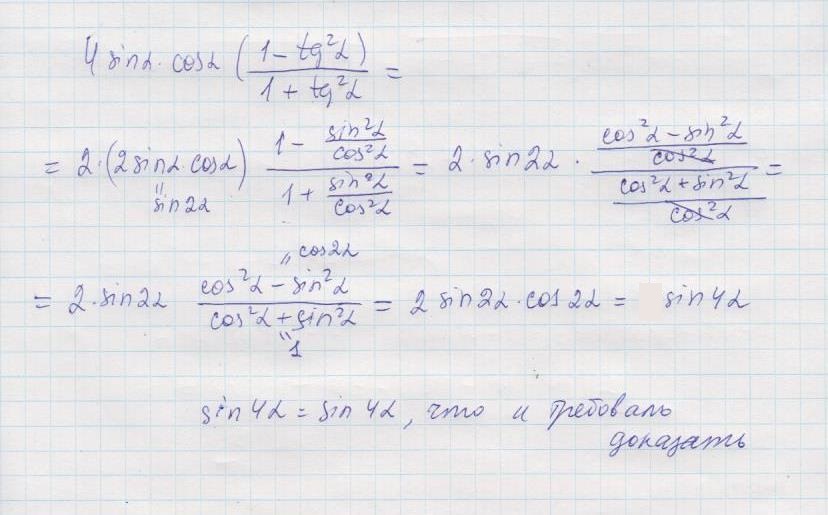 4 sinα · cosα ( (1 - tg²α) / (1 + tg²α) ) =
= 2 · (2 sinα · cosα) (1 - sin²α/cos²α) / (1 + sin²α/cos²α) = 2 · sin2α · ((cos²α - sin²α)/cos²α) / ((cos²α + sin²α)/cos²α) =
" sin2α
" cos2α
= 2 · sin2α (cos²α - sin²α) / (cos²α + sin²α) = 2 sin2α · cos2α = sin4α
" 1
sin4α = sin4α, что и требовалось
доказать